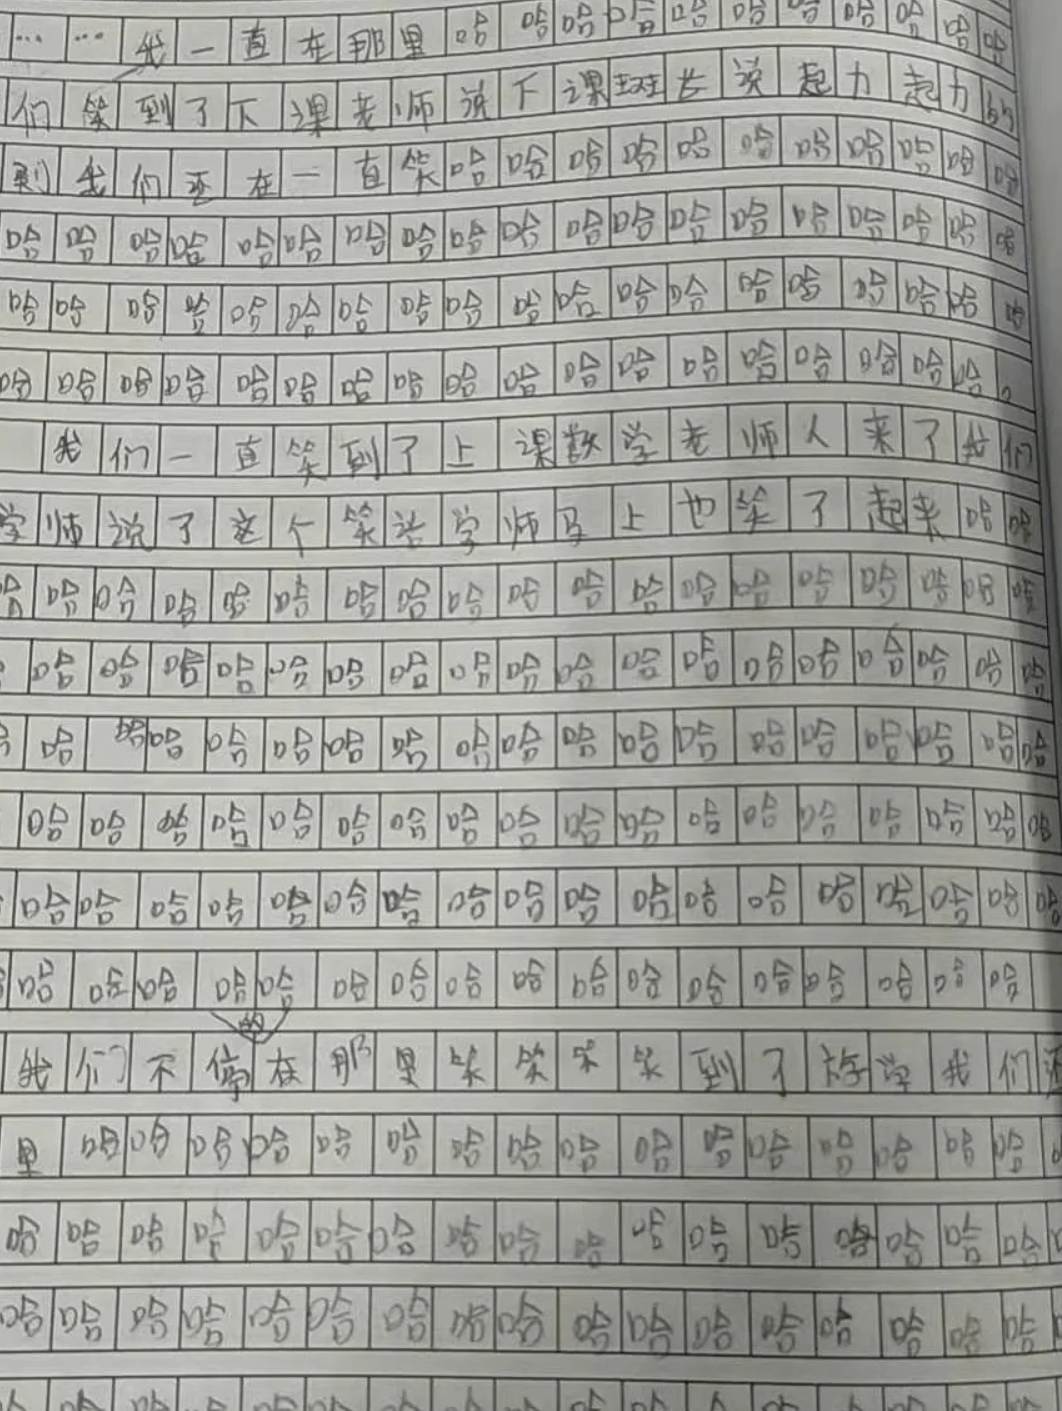 ……我一直在那里哈哈哈哈哈哈哈哈哈哈哈
们笑到了下课老师说下课班长说起力起力
则我们还在一直笑哈哈哈哈哈哈哈哈哈哈哈
哈哈哈哈哈哈哈哈哈哈哈哈哈哈哈哈哈哈哈
哈哈哈哈哈哈哈哈哈哈哈哈哈哈哈哈哈哈哈
哈哈哈哈哈哈哈哈哈哈哈哈哈哈哈哈哈哈。
我们一直笑到了上课数学老师人来了我们
学师说了这个笑话学师马上也笑了起来哈哈
哈哈哈哈哈哈哈哈哈哈哈哈哈哈哈哈哈哈哈
哈哈哈哈哈哈哈哈哈哈哈哈哈哈哈哈哈哈
哈哈哈哈哈哈哈哈哈哈哈哈哈哈哈哈哈哈哈
哈哈哈哈哈哈哈哈哈哈哈哈哈哈哈哈哈哈
哈哈哈哈哈哈哈哈哈哈哈哈哈哈哈哈哈哈
哈哈哈哈哈哈哈哈哈哈哈哈哈哈哈哈哈
我们不停的在那里笑笑笑笑到了放学我们还
里哈哈哈哈哈哈哈哈哈哈哈哈哈哈哈哈
哈哈哈哈哈哈哈哈哈哈哈哈哈哈哈哈哈
哈哈哈哈哈哈哈哈哈哈哈哈哈哈哈哈哈